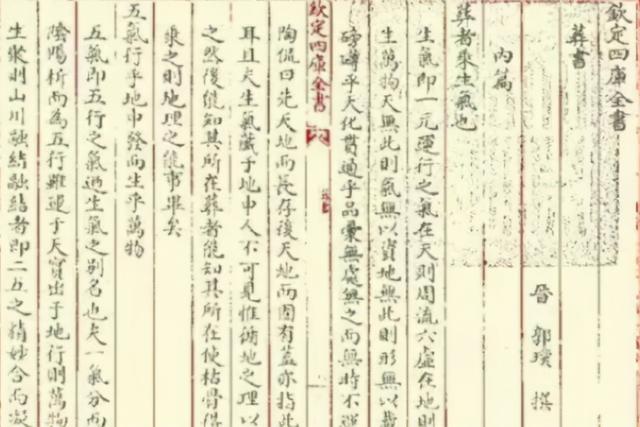 欽定四庫全書
葬書
晉 郭璞 撰
內篇
葬者乗生氣也
生氣即一元運行之氣在天則周流六虛在地則
生萬物天無此則氣無以資地無此則形無以載
磅礴乎大化貫通乎品彚無處無之而無時不運
欽定四庫全書
陶侃曰先天地而長存後天地而固有蓋亦指此
耳且夫生氣藏于地中人不可見惟循地之理以
之然後能知其所在葬者能知其所在使枯骨得
乗之則地理之能事畢矣
五氣行乎地中發而生乎萬物
五氣即五行之氣乃生氣之別名也夫一氣分而
隂陽析而為五行雖運于天實出于地行則萬物
生聚則山川融結融結者即二五之精妙合而凝